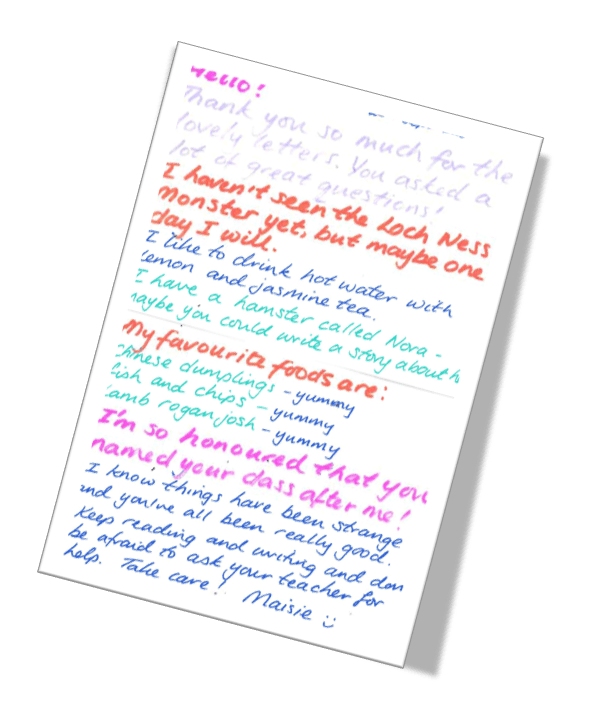 Hello!
Thank you so much for the
lovely letters. You asked a
lot of great questions!
I haven't seen the Loch Ness
Monster yet, but maybe one
day I will.
I like to drink hot water with
lemon and jasmine tea.
I have a hamster called Nora -
maybe you could write a story about h
My favourite foods are:
Chinese dumplings - yummy
fish and chips - yummy
lamb rogan josh - yummy
I'm so honoured that you
named your class after me!
I know things have been strange
and you've all been really good.
Keep reading and writing and don
be afraid to ask your teacher for
help. Take care! Maisie :)